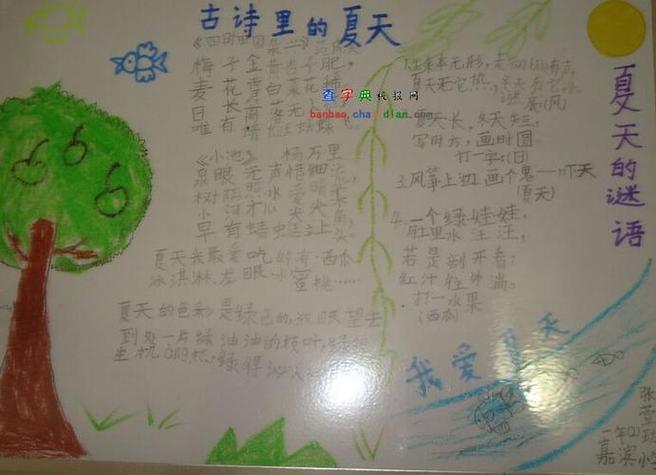 古诗里的夏天
《四时田园杂兴》范成大
梅子金黄杏子肥,
麦花雪白菜花稀
日长篱落无
唯有蜻蜓蛱蝶飞。
《小池》 杨万里
泉眼无声惜细流
树阴照水爱晴柔
小荷才
早有蜻蜓立上头。
夏天我最爱吃的有:西瓜
冰淇淋、龙眼、水蜜桃……
夏天的色彩是绿色的,放眼望去
到处一片绿油油的枝叶,绿得
生机勃勃,绿得
查字典手抄报网
banbao.chazidian.com
夏天的谜语
1.生来本无形,走动便有声
夏天无它热,冬天有它冷
谜底(风)
夏天长,冬天短,
写时方,画时圆
打一字(日)
3.风筝上边画个鬼——吓天
(夏天)
4.一个绿娃娃,
肚里水汪汪,
若是剖开看,
红汁往外淌。
打一水果
(西瓜)
我爱夏天
一年(2)
嘉滨小